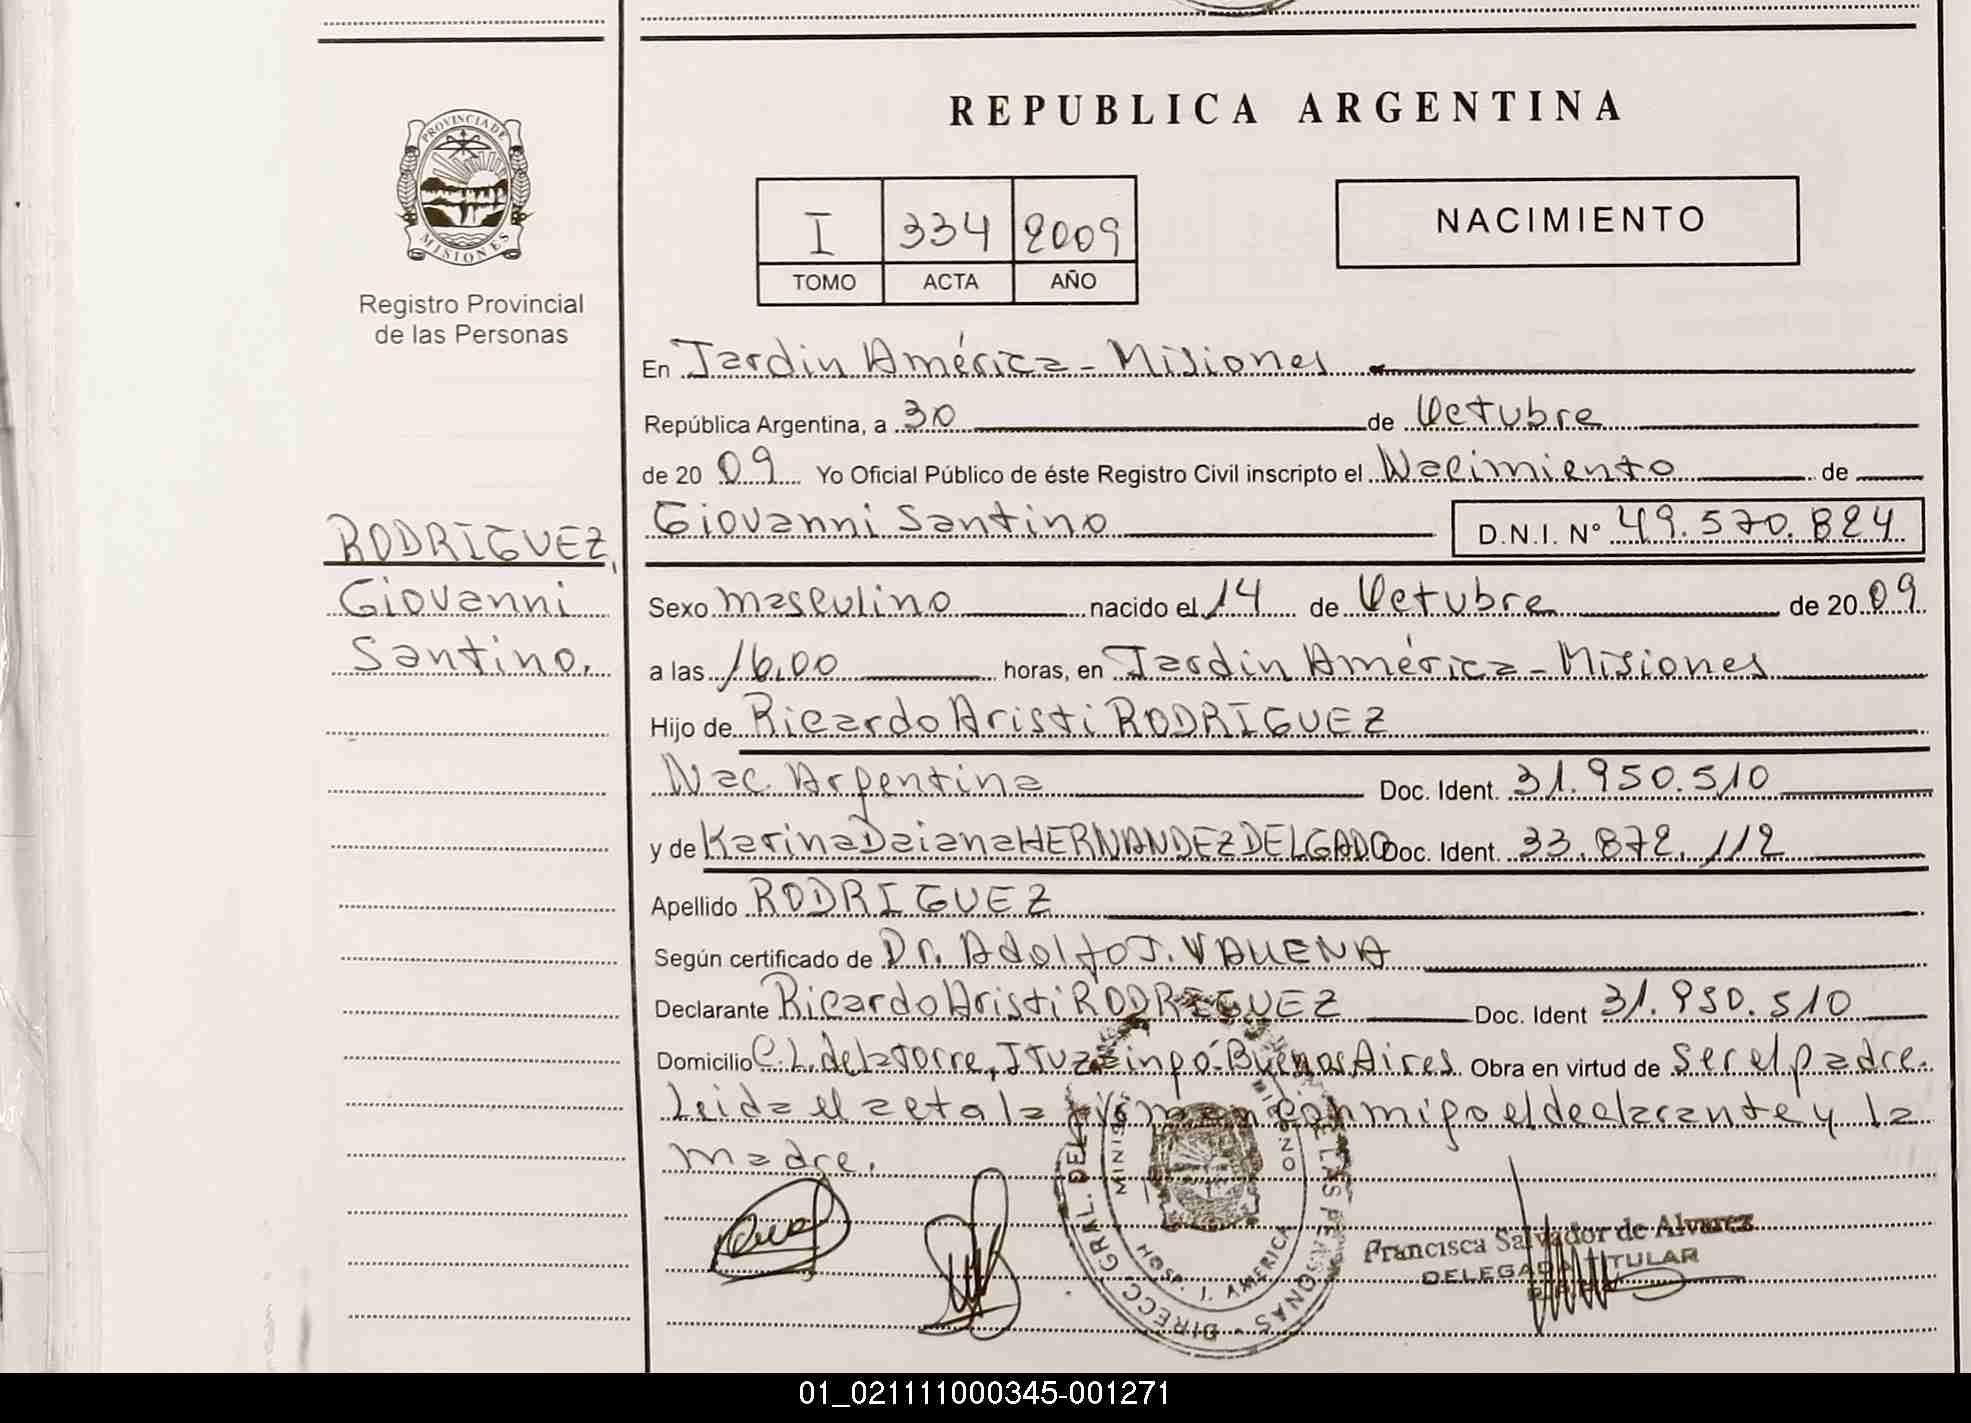 REPUBLICA ARGENTINA
PROVINCIA DE
MISIONES
Registro Provincial
de las Personas
I 334 2009
TOMO ACTA AÑO
NACIMIENTO
En Jardin América - Misiones
República Argentina, a 30 de Octubre
de 20 09 Yo Oficial Público de éste Registro Civil inscripto el Nacimiento de
Giovanni Santino D.N.I. Nº 49.570.824
RODRIGUEZ,
Giovanni
Santino.
Sexo masculino nacido el 14 de Octubre de 20 09
a las 16,00 horas, en Jardin América - Misiones
Hijo de Ricardo Aristi RODRIGUEZ
Nac. Argentina Doc. Ident. 31.950.510
y de Karina Daiana HERNANDEZ DELGADO Doc. Ident. 33.872.112
Apellido RODRIGUEZ
Según certificado de Dr. Adolfo J. VALLENA
Declarante Ricardo Aristi RODRIGUEZ Doc. Ident 31.950.510
Domicilio C. L. de la Torre, Ituzaingó. Buenos Aires Obra en virtud de ser el padre.
Leida el acta la firman conmigo el declarante y la
madre.
DIRECC. GRAL. DEL DE LAS PERSONAS
HOSP. J. AMERICA
Francisca Salvador de Alvarez
DELEGADA TITULAR
01_021111000345-001271